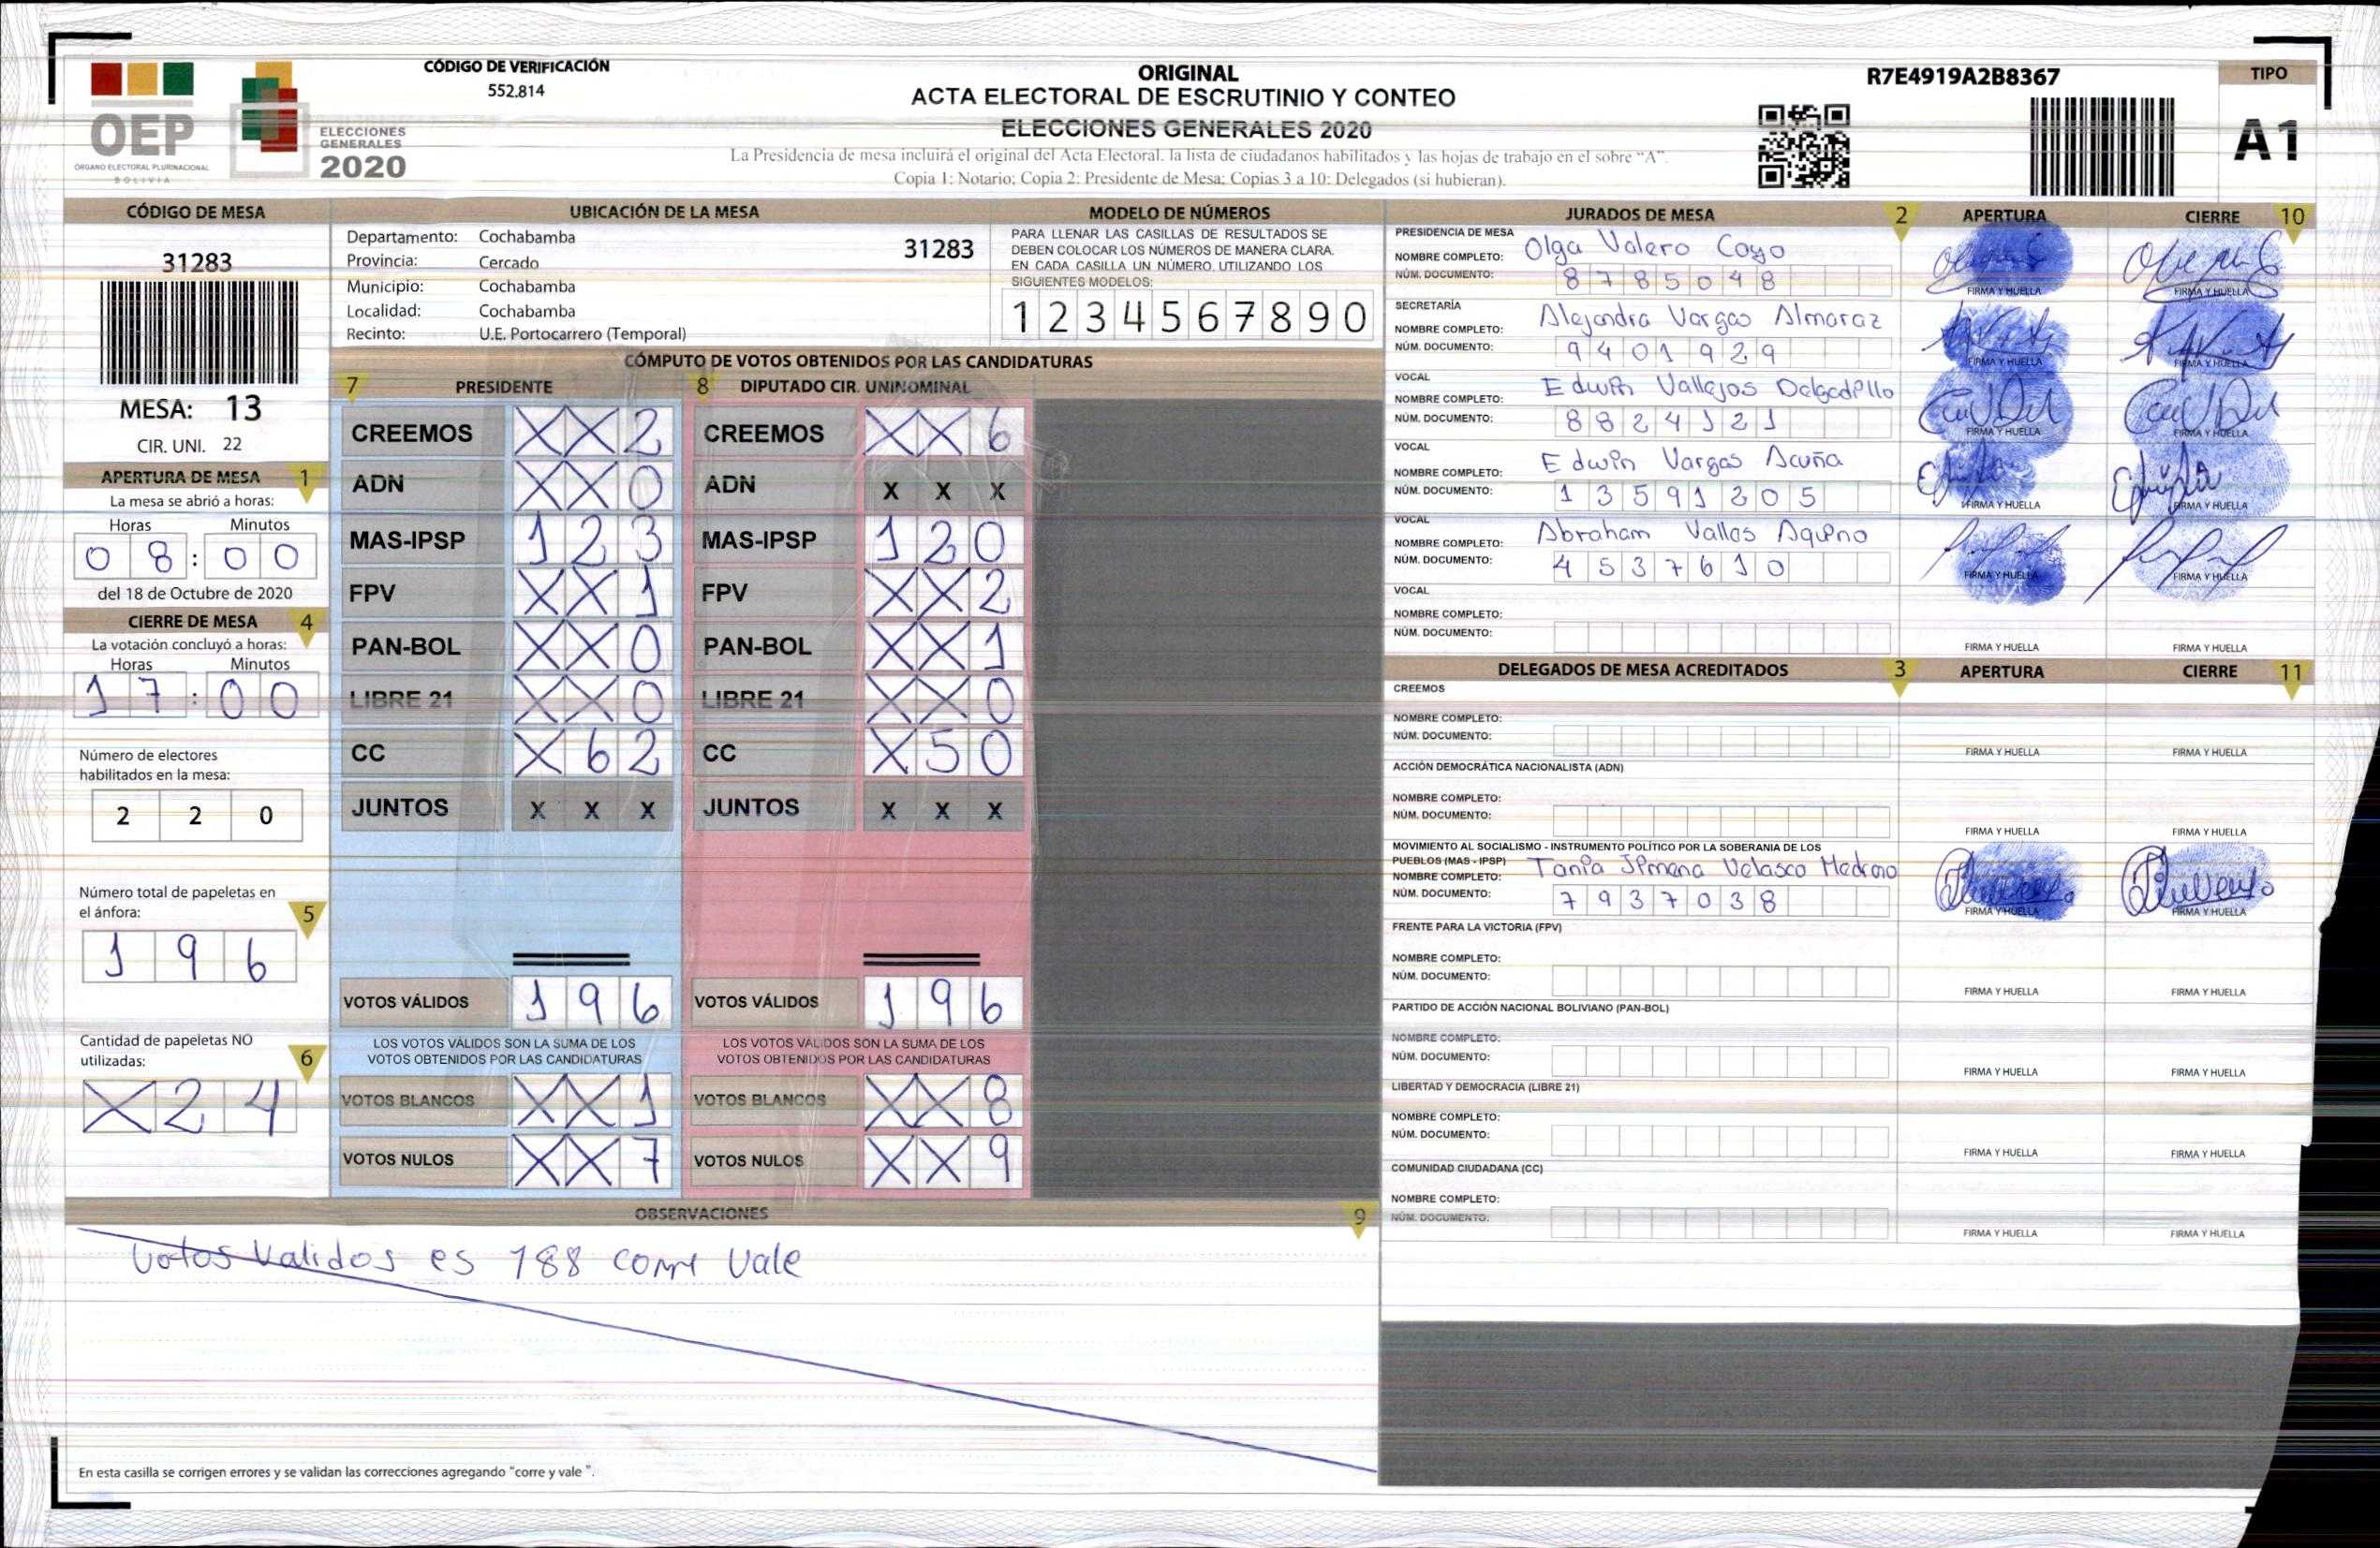 CÓDIGO DE VERIFICACIÓN
552.814
OEP
ÓRGANO ELECTORAL PLURINACIONAL
BOLIVIA
ELECCIONES
GENERALES
2020
ORIGINAL
ACTA ELECTORAL DE ESCRUTINIO Y CONTEO
ELECCIONES GENERALES 2020
La Presidencia de mesa incluirá el original del Acta Electoral, la lista de ciudadanos habilitados y las hojas de trabajo en el sobre "A".
Copia 1: Notario; Copia 2: Presidente de Mesa; Copias 3 a 10: Delegados (si hubieran).
R7E4919A2B8367
TIPO
A1
CÓDIGO DE MESA
31283
MESA: 13
CIR. UNI. 22
APERTURA DE MESA 1
La mesa se abrió a horas:
Horas Minutos
08:00
del 18 de Octubre de 2020
CIERRE DE MESA 4
La votación concluyó a horas:
Horas Minutos
17:00
Número de electores
habilitados en la mesa:
2 2 0
Número total de papeletas en
el ánfora: 5
1 9 6
Cantidad de papeletas NO
utilizadas: 6
X 2 4
UBICACIÓN DE LA MESA
Departamento: Cochabamba
31283
Provincia: Cercado
Municipio: Cochabamba
Localidad: Cochabamba
Recinto: U.E. Portocarrero (Temporal)
MODELO DE NÚMEROS
PARA LLENAR LAS CASILLAS DE RESULTADOS SE
DEBEN COLOCAR LOS NÚMEROS DE MANERA CLARA.
EN CADA CASILLA UN NÚMERO, UTILIZANDO LOS
SIGUIENTES MODELOS:
1 2 3 4 5 6 7 8 9 0
CÓMPUTO DE VOTOS OBTENIDOS POR LAS CANDIDATURAS
7 PRESIDENTE 8 DIPUTADO CIR. UNINOMINAL
CREEMOS X X 2 CREEMOS X X 6
ADN X X 0 ADN X X X
MAS-IPSP 1 2 3 MAS-IPSP 1 2 0
FPV X X 1 FPV X X 2
PAN-BOL X X 0 PAN-BOL X X 1
LIBRE 21 X X 0 LIBRE 21 X X 0
CC X 6 2 CC X 5 0
JUNTOS X X X JUNTOS X X X
VOTOS VÁLIDOS 1 9 6 VOTOS VÁLIDOS 1 9 6
LOS VOTOS VÁLIDOS SON LA SUMA DE LOS
VOTOS OBTENIDOS POR LAS CANDIDATURAS
LOS VOTOS VÁLIDOS SON LA SUMA DE LOS
VOTOS OBTENIDOS POR LAS CANDIDATURAS
VOTOS BLANCOS X X 1 VOTOS BLANCOS X X 8
VOTOS NULOS X X 7 VOTOS NULOS X X 9
OBSERVACIONES 9
Votos Validos es 188 corre Vale
En esta casilla se corrigen errores y se validan las correcciones agregando "corre y vale ".
JURADOS DE MESA 2 APERTURA CIERRE 10
PRESIDENCIA DE MESA
NOMBRE COMPLETO: Olga Valero Coyo
NÚM. DOCUMENTO: 8785048
FIRMA Y HUELLA FIRMA Y HUELLA
SECRETARÍA
NOMBRE COMPLETO: Alejandra Vargas Almaraz
NÚM. DOCUMENTO: 9401929
FIRMA Y HUELLA FIRMA Y HUELLA
VOCAL
NOMBRE COMPLETO: Edwin Vallejos Delgadillo
NÚM. DOCUMENTO: 8824121
FIRMA Y HUELLA FIRMA Y HUELLA
VOCAL
NOMBRE COMPLETO: Edwin Vargas Acuña
NÚM. DOCUMENTO: 13591205
FIRMA Y HUELLA FIRMA Y HUELLA
VOCAL
NOMBRE COMPLETO: Abraham Vallos Aquino
NÚM. DOCUMENTO: 4537610
FIRMA Y HUELLA FIRMA Y HUELLA
VOCAL
NOMBRE COMPLETO:
NÚM. DOCUMENTO:
FIRMA Y HUELLA FIRMA Y HUELLA
DELEGADOS DE MESA ACREDITADOS 3 APERTURA CIERRE 11
CREEMOS
NOMBRE COMPLETO:
NÚM. DOCUMENTO:
FIRMA Y HUELLA FIRMA Y HUELLA
ACCIÓN DEMOCRÁTICA NACIONALISTA (ADN)
NOMBRE COMPLETO:
NÚM. DOCUMENTO:
FIRMA Y HUELLA FIRMA Y HUELLA
MOVIMIENTO AL SOCIALISMO - INSTRUMENTO POLÍTICO POR LA SOBERANIA DE LOS
PUEBLOS (MAS - IPSP)
NOMBRE COMPLETO: Tania Jimena Velasco Medrano
NÚM. DOCUMENTO: 7937038
FIRMA Y HUELLA FIRMA Y HUELLA
FRENTE PARA LA VICTORIA (FPV)
NOMBRE COMPLETO:
NÚM. DOCUMENTO:
FIRMA Y HUELLA FIRMA Y HUELLA
PARTIDO DE ACCIÓN NACIONAL BOLIVIANO (PAN-BOL)
NOMBRE COMPLETO:
NÚM. DOCUMENTO:
FIRMA Y HUELLA FIRMA Y HUELLA
LIBERTAD Y DEMOCRACIA (LIBRE 21)
NOMBRE COMPLETO:
NÚM. DOCUMENTO:
FIRMA Y HUELLA FIRMA Y HUELLA
COMUNIDAD CIUDADANA (CC)
NOMBRE COMPLETO:
NÚM. DOCUMENTO:
FIRMA Y HUELLA FIRMA Y HUELLA